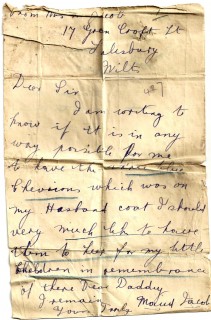 From Mrs Jacob
17 Green Croft St
Salisbury
Wilts
Dear Sir
I am writing to
know if it is in any
way posible for me
to have the
Chevrons which was on
my Husband coat I should
very much like to have
them to keep for my little
children in remembrance
of there Dear Daddy
I remain
Yours Truly Maud Jacob